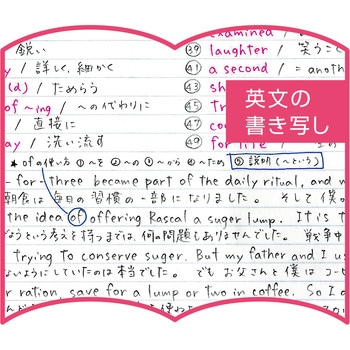 英文の
書き写し
鋭い
㊴ laughter / 笑うこ
y / 詳しく, 細かく
㊶ a second / = anoth
(d) / ためらう
㊸
of ~ing / ~の代わりに
㊺
/ 直接に
㊼
ay / 洗い流す
㊾ for life /
★ofの使い方 ①~を ②~の ③~から ④~ため ⑤説明(~という)
- for - three became part of the daily ritual, and w
朝食は毎日の習慣の一部になりました。 そして僕の
the idea of offering Rascal a suger lump. It is t
なうという考えを持つまでは、何の問題もありませんでした。 戦争中
trying to conserve suger. But my father and I us
ないようにしていたのは本当でした。 でも お父さんと僕は コーヒ
r ration, save for a lump or two in coffee. So I d